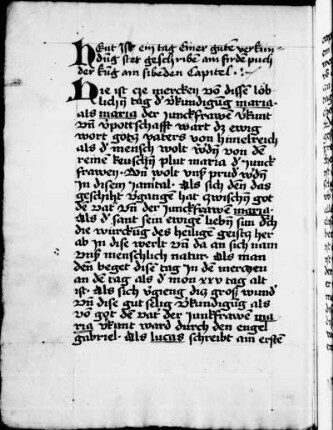 Heut ist ein tag einer guten verkun=
dung ster geschriben am firde puch
der kung am sibeden Capitel.
Hie ist cze mercken von disse löb
lichn tag d' v'kundigung maria.
als maria der iunckfrawē v'kunt
vn v'pottschafft wart dz ewig
wort gotz vaters von himelreich
als d' mensch wolt w'dn von der
reine keuschn plut maria d' iunck
frawen. Vn wolt vnß prud' w'dn
in disem iamital. Als sich den das
geschiht v'gangē hat zwischn got
de vat' vn der iunckfrawē maria.
Als d' sant sein ewigē liebn sun d'ch
die würckūg des heiligē geisz her
ab in dise werlt vn da an sich nam
vnß menschlich natur. Als man
den beget disē tag in dē merczen
an de tag als d' mon xxv tag alt
ist. Als sich v'gieng diz groß wund'
vn dise gut selig v'kundigūg als
vō got de vat' der iunkfrawē ma
ria v'kunt ward durch den engel
gabriel. Als lucas schreibt am ersten